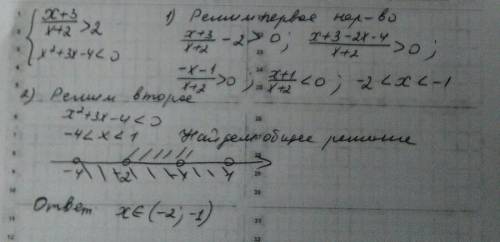 { (x+3)/(x+2) > 2
x²+3x-4<0
1) Решим первое нер-во
(x+3)/(x+2) - 2 > 0; (x+3-2x-4)/(x+2) > 0;
(-x-1)/(x+2) > 0; (x+1)/(x+2) < 0; -2<x<-1
2) Решим второе
x²+3x-4<0
-4<x<1 Найдем общее решение
-4 -2 -1 1
Ответ x∈(-2;-1)